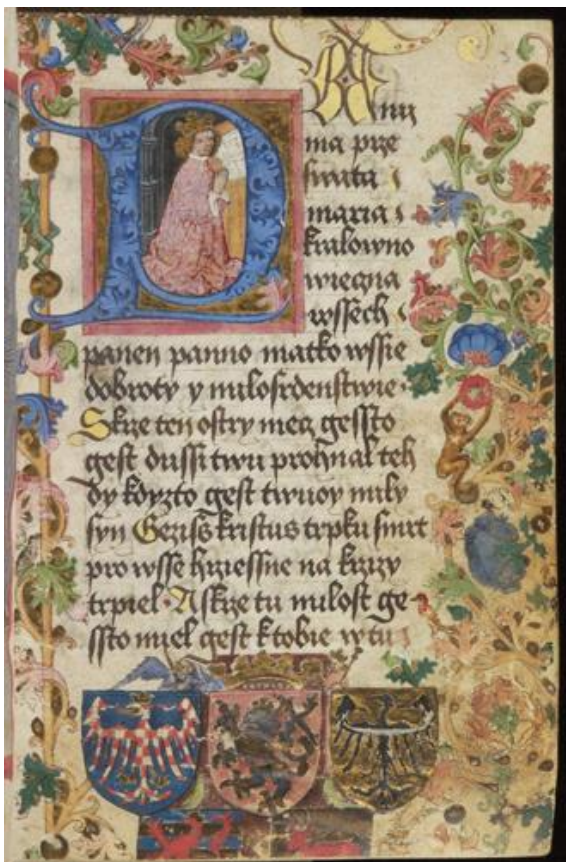 PAny
ma prze
swata
maria
kralowno
wieczna
wssech
panen panno matko wssie
dobroty y milosrdenstwie
Skrze ten ostry mecz gessto
gest dussi twu prohnal teh
dy kdyzto gest twuoy mily
syn Geziss kristus trpku smrt
pro wsse hrziessne na krzizy
trpiel · A skrze tu milost ge
ssto miel gest k tobie w tu